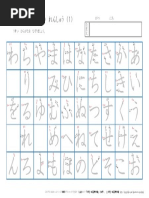 れんしゅう (1)
わらやまはなたさかあ
りみひにちしきい
をるゆむふぬつすくう
れめへねてせけえ
んろよもほのとそこお